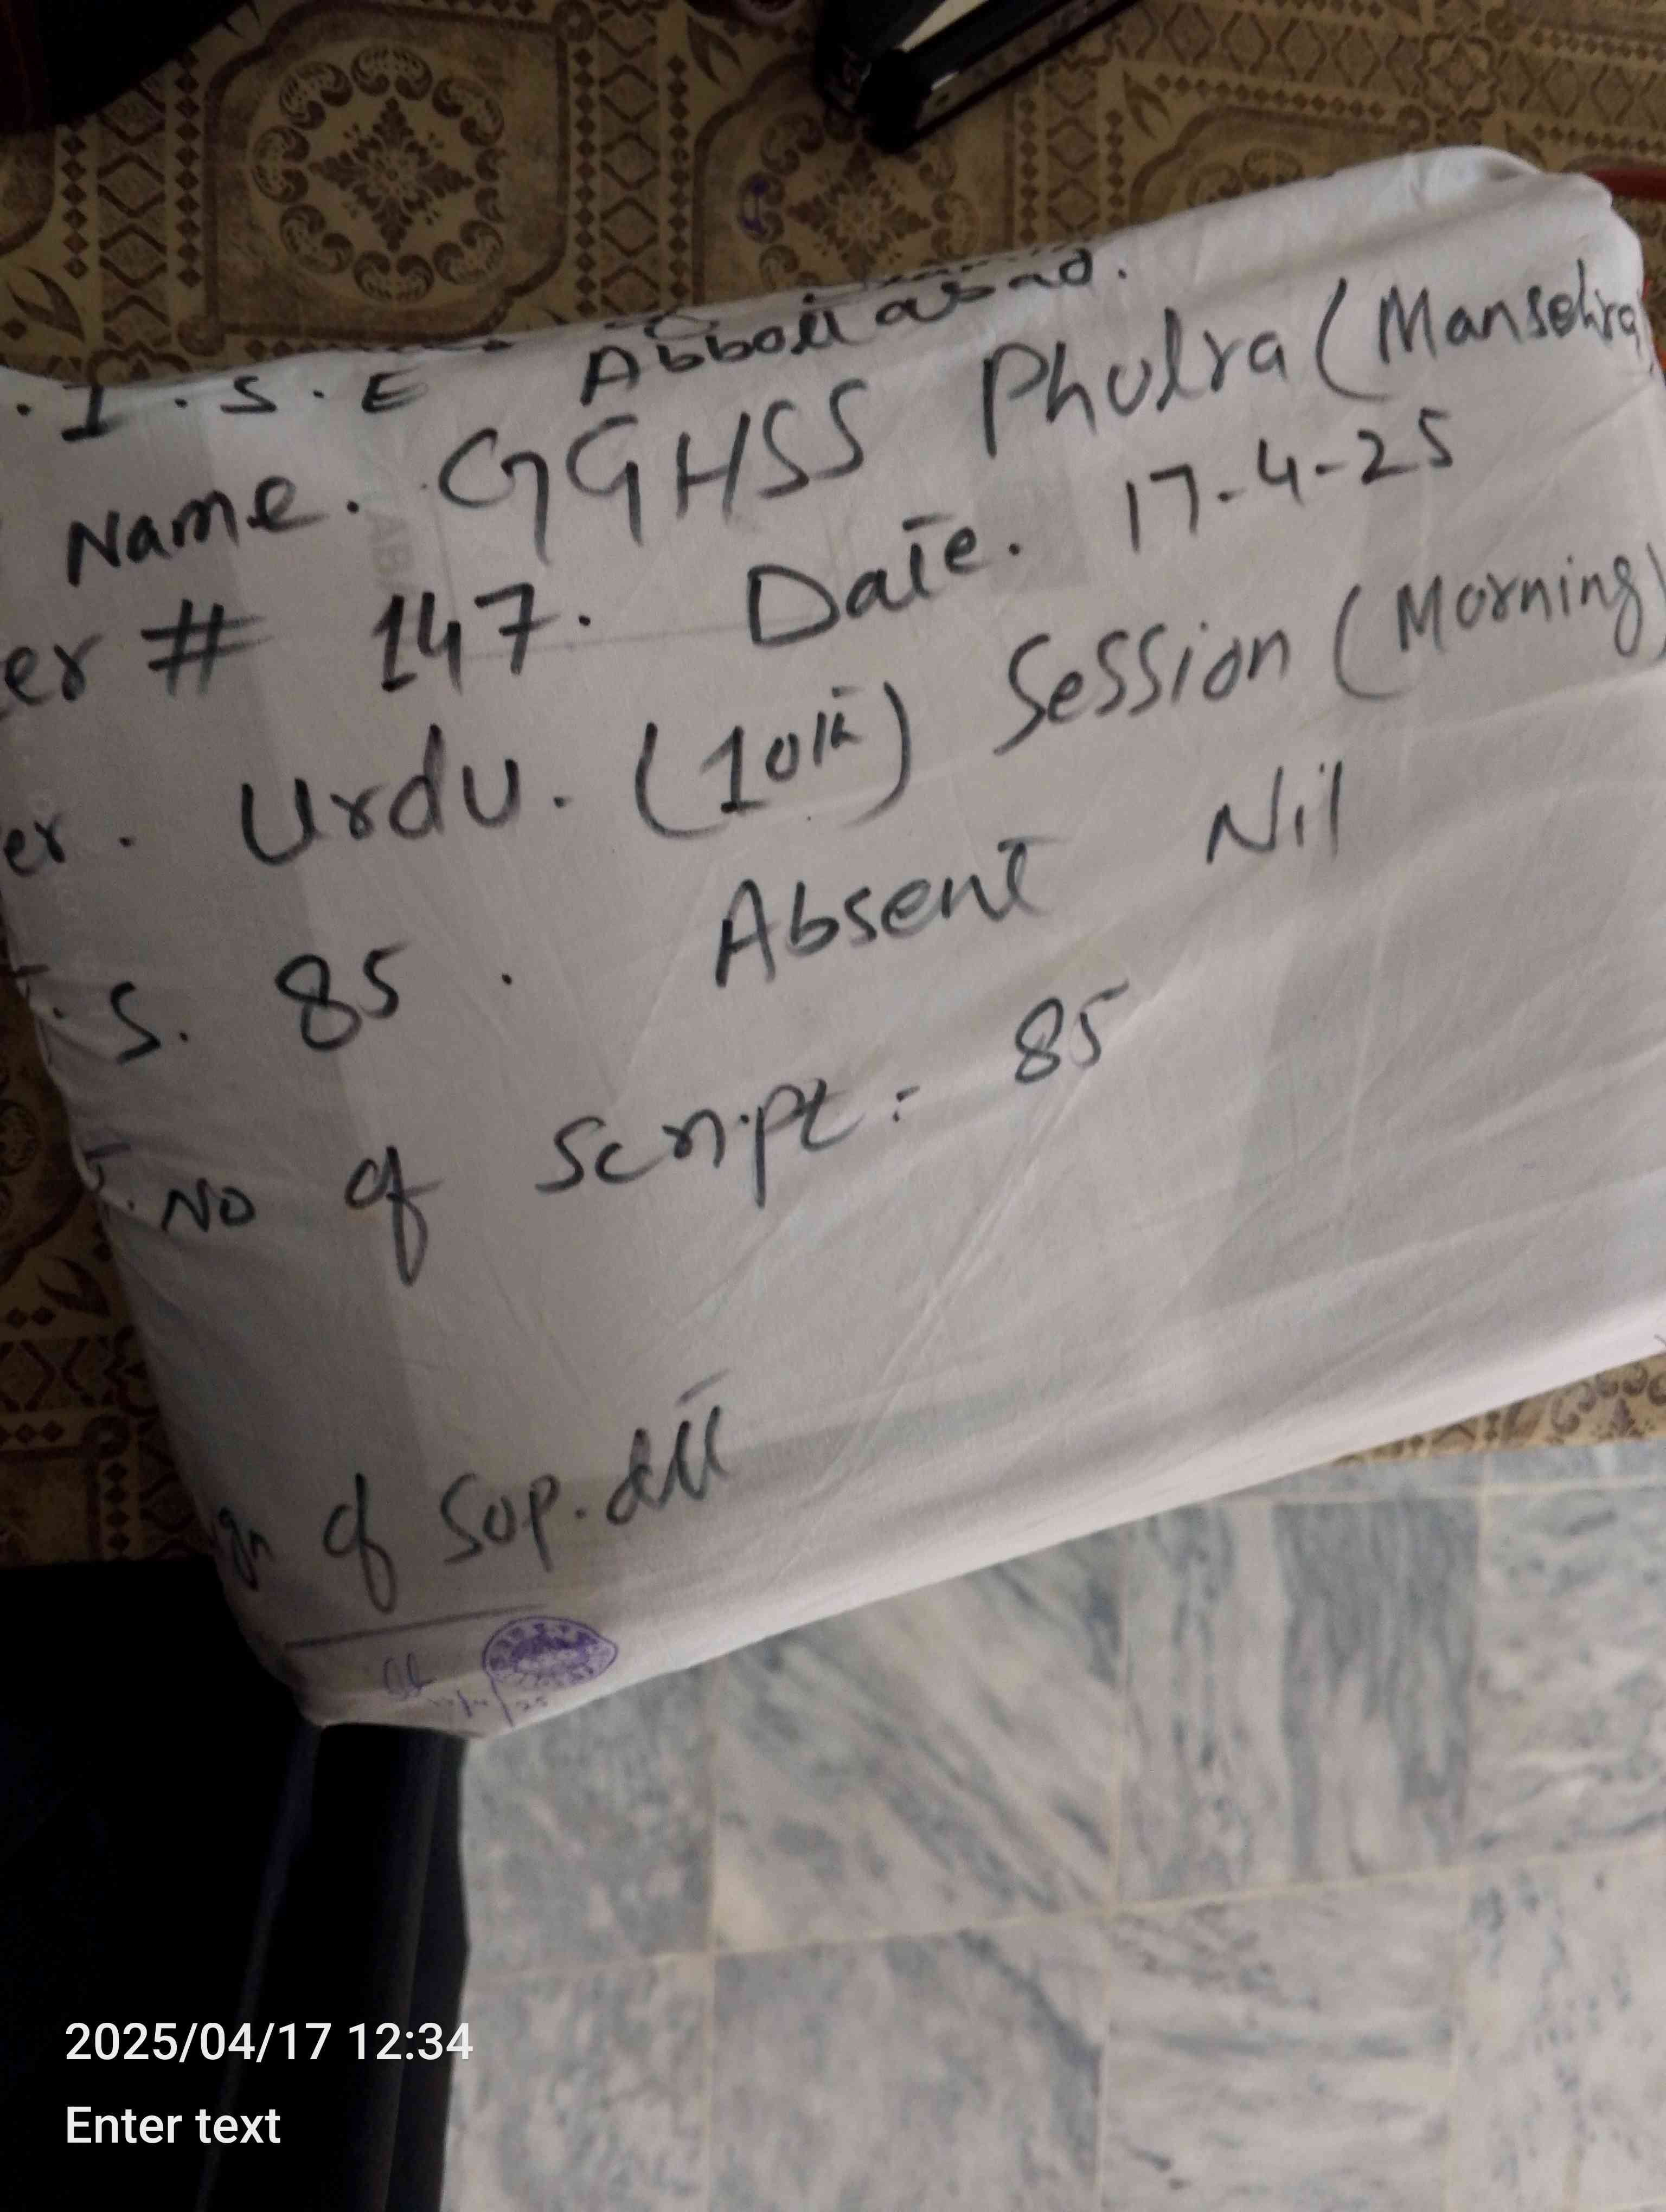 .I.S.E Abbottabad.
Name. GGHSS Phulra (Mansehra)
er # 147. Date. 17-4-25
er. Urdu. (10th) Session (Morning)
.S. 85. Absent Nil
T. No of Script:- 85
gn of Sup.dtt
2025/04/17 12:34
Enter text